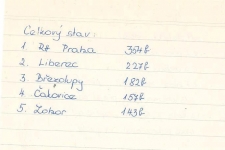 Celkový stav:
1. Praha 354b.
2. Liberec 227b.
3 Březolupy 182b.
4 Čakovice 157b.
5. Zobor 143b.